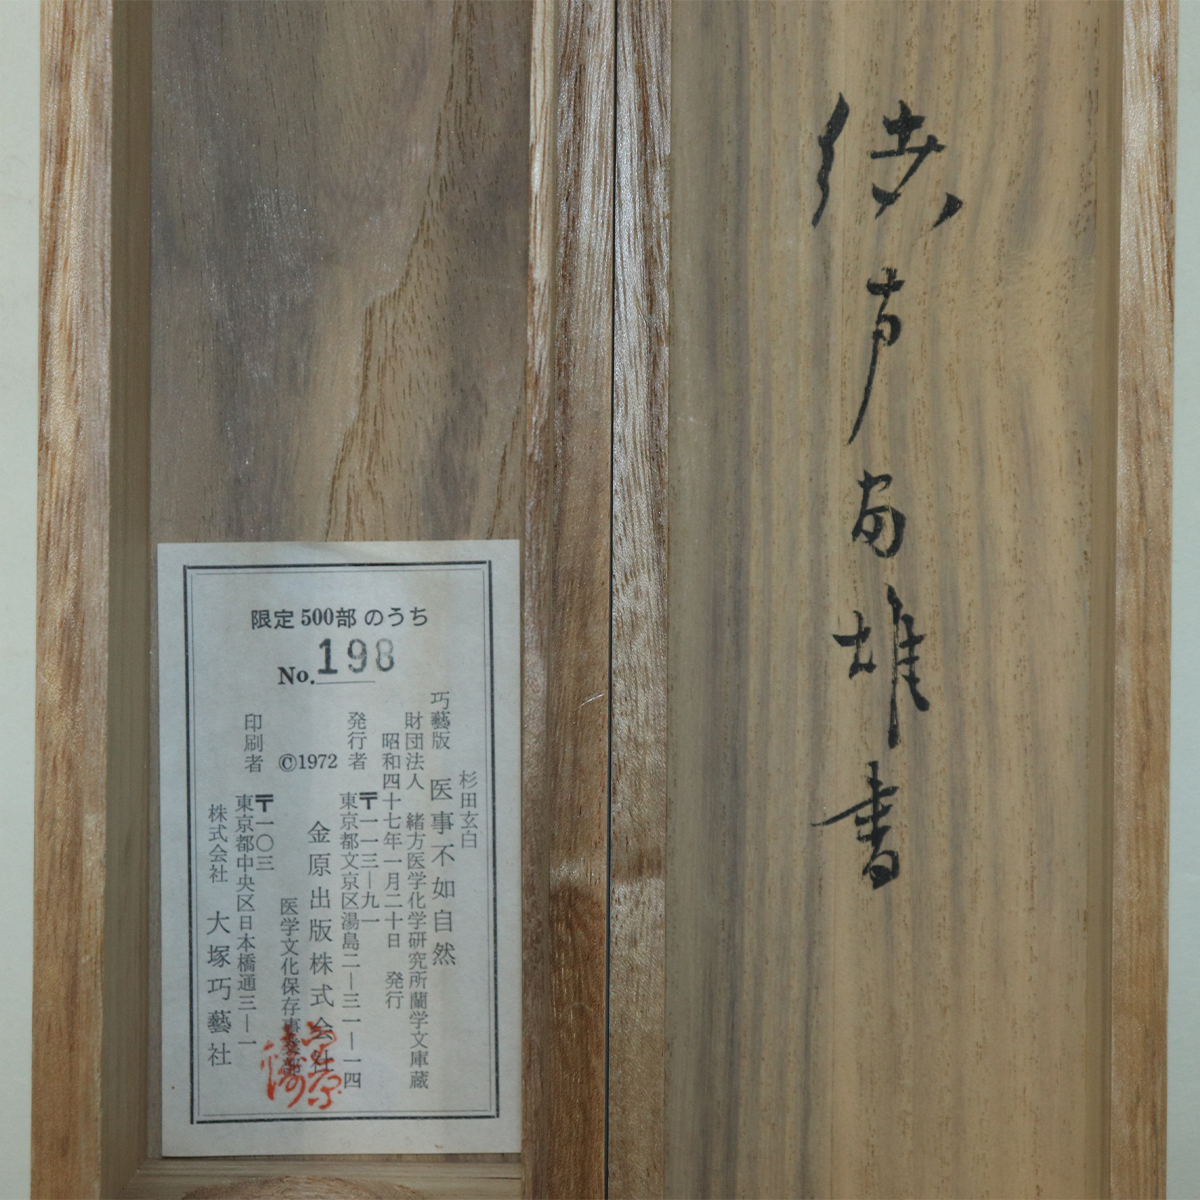 緒方富雄書
限定500部のうち
No.198
杉田玄白
巧藝版 医事不如自然
財団法人 緒方医学化学研究所蘭学文庫蔵
昭和四十七年一月二十日 発行
〒一一三―九一
発行者 東京都文京区湯島二―三一―一四
金原出版株式会社
©1972 医学文化保存事業部
〒一〇三
印刷者 東京都中央区日本橋通三―一
株式会社 大塚巧藝社